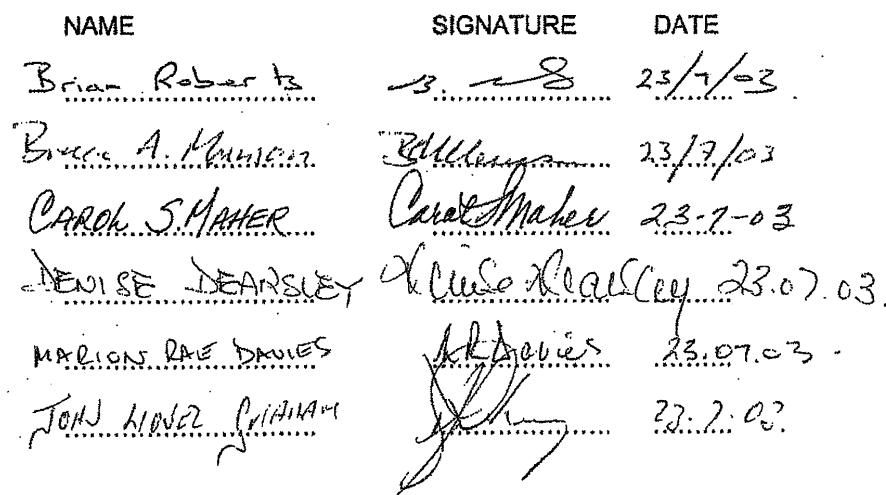 NAME SIGNATURE DATE
Brian Roberts 23/7/03
Bruce A. Munson 23/7/03
CAROL S. MAHER Carol S Maher 23-7-03
DENISE DEARSLEY Denise Dearsley 23.07.03.
MARION RAE DAVIES MR Davies 23.07.03.
JOHN LIONEL GRAHAM 23.7.03